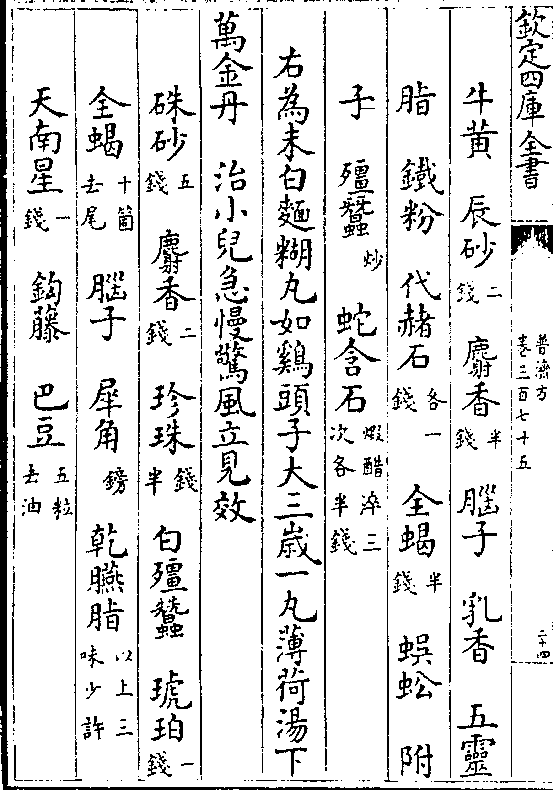 欽定四庫全書
普濟方
卷三百七十五
二十四
牛黄 辰砂二錢 麝香半錢 腦子 乳香 五靈
脂 鐵粉 代赭石各一錢 全蝎半錢 蜈蚣 附
子 殭蠶炒 蛇含石煅醋淬三次各半錢
右為末白麵糊丸如鷄頭子大三歲一丸薄荷湯下
萬金丹 治小兒急慢驚風立見效
硃砂五錢 麝香二錢 珍珠錢半 白殭蠶 琥珀一錢
全蝎十箇去尾 腦子 犀角鎊 乾臙脂以上三味少許
天南星一錢 鈎藤 巴豆五粒去油